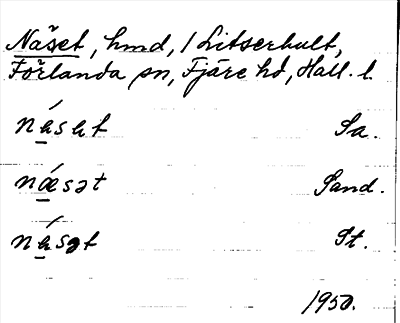 Näset, hmd, 1 Litserhult,
Förlanda sn, Fjäre hd, Hall. l.
nä́sət Sa.
næ̀sət Sand.
nä́sət St.
1950.